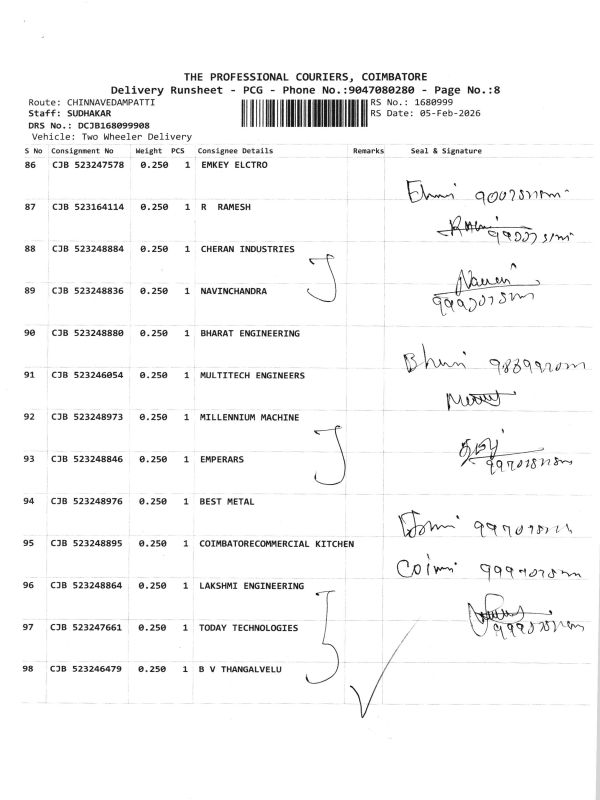 THE PROFESSIONAL COURIERS, COIMBATORE
Delivery Runsheet - PCG - Phone No.:9047080280 - Page No.:8
Route: CHINNAVEDAMPATTI RS No.: 1680999
Staff: SUDHAKAR RS Date: 05-Feb-2026
DRS No.: DCJB168099908
Vehicle: Two Wheeler Delivery
S No Consignment No Weight PCS Consignee Details Remarks Seal & Signature
86 CJB 523247578 0.250 1 EMKEY ELCTRO
87 CJB 523164114 0.250 1 R RAMESH
88 CJB 523248884 0.250 1 CHERAN INDUSTRIES
89 CJB 523248836 0.250 1 NAVINCHANDRA
90 CJB 523248880 0.250 1 BHARAT ENGINEERING
91 CJB 523246054 0.250 1 MULTITECH ENGINEERS
92 CJB 523248973 0.250 1 MILLENNIUM MACHINE
93 CJB 523248846 0.250 1 EMPERARS
94 CJB 523248976 0.250 1 BEST METAL
95 CJB 523248895 0.250 1 COIMBATORECOMMERCIAL KITCHEN
96 CJB 523248864 0.250 1 LAKSHMI ENGINEERING
97 CJB 523247661 0.250 1 TODAY TECHNOLOGIES
98 CJB 523246479 0.250 1 B V THANGALVELU